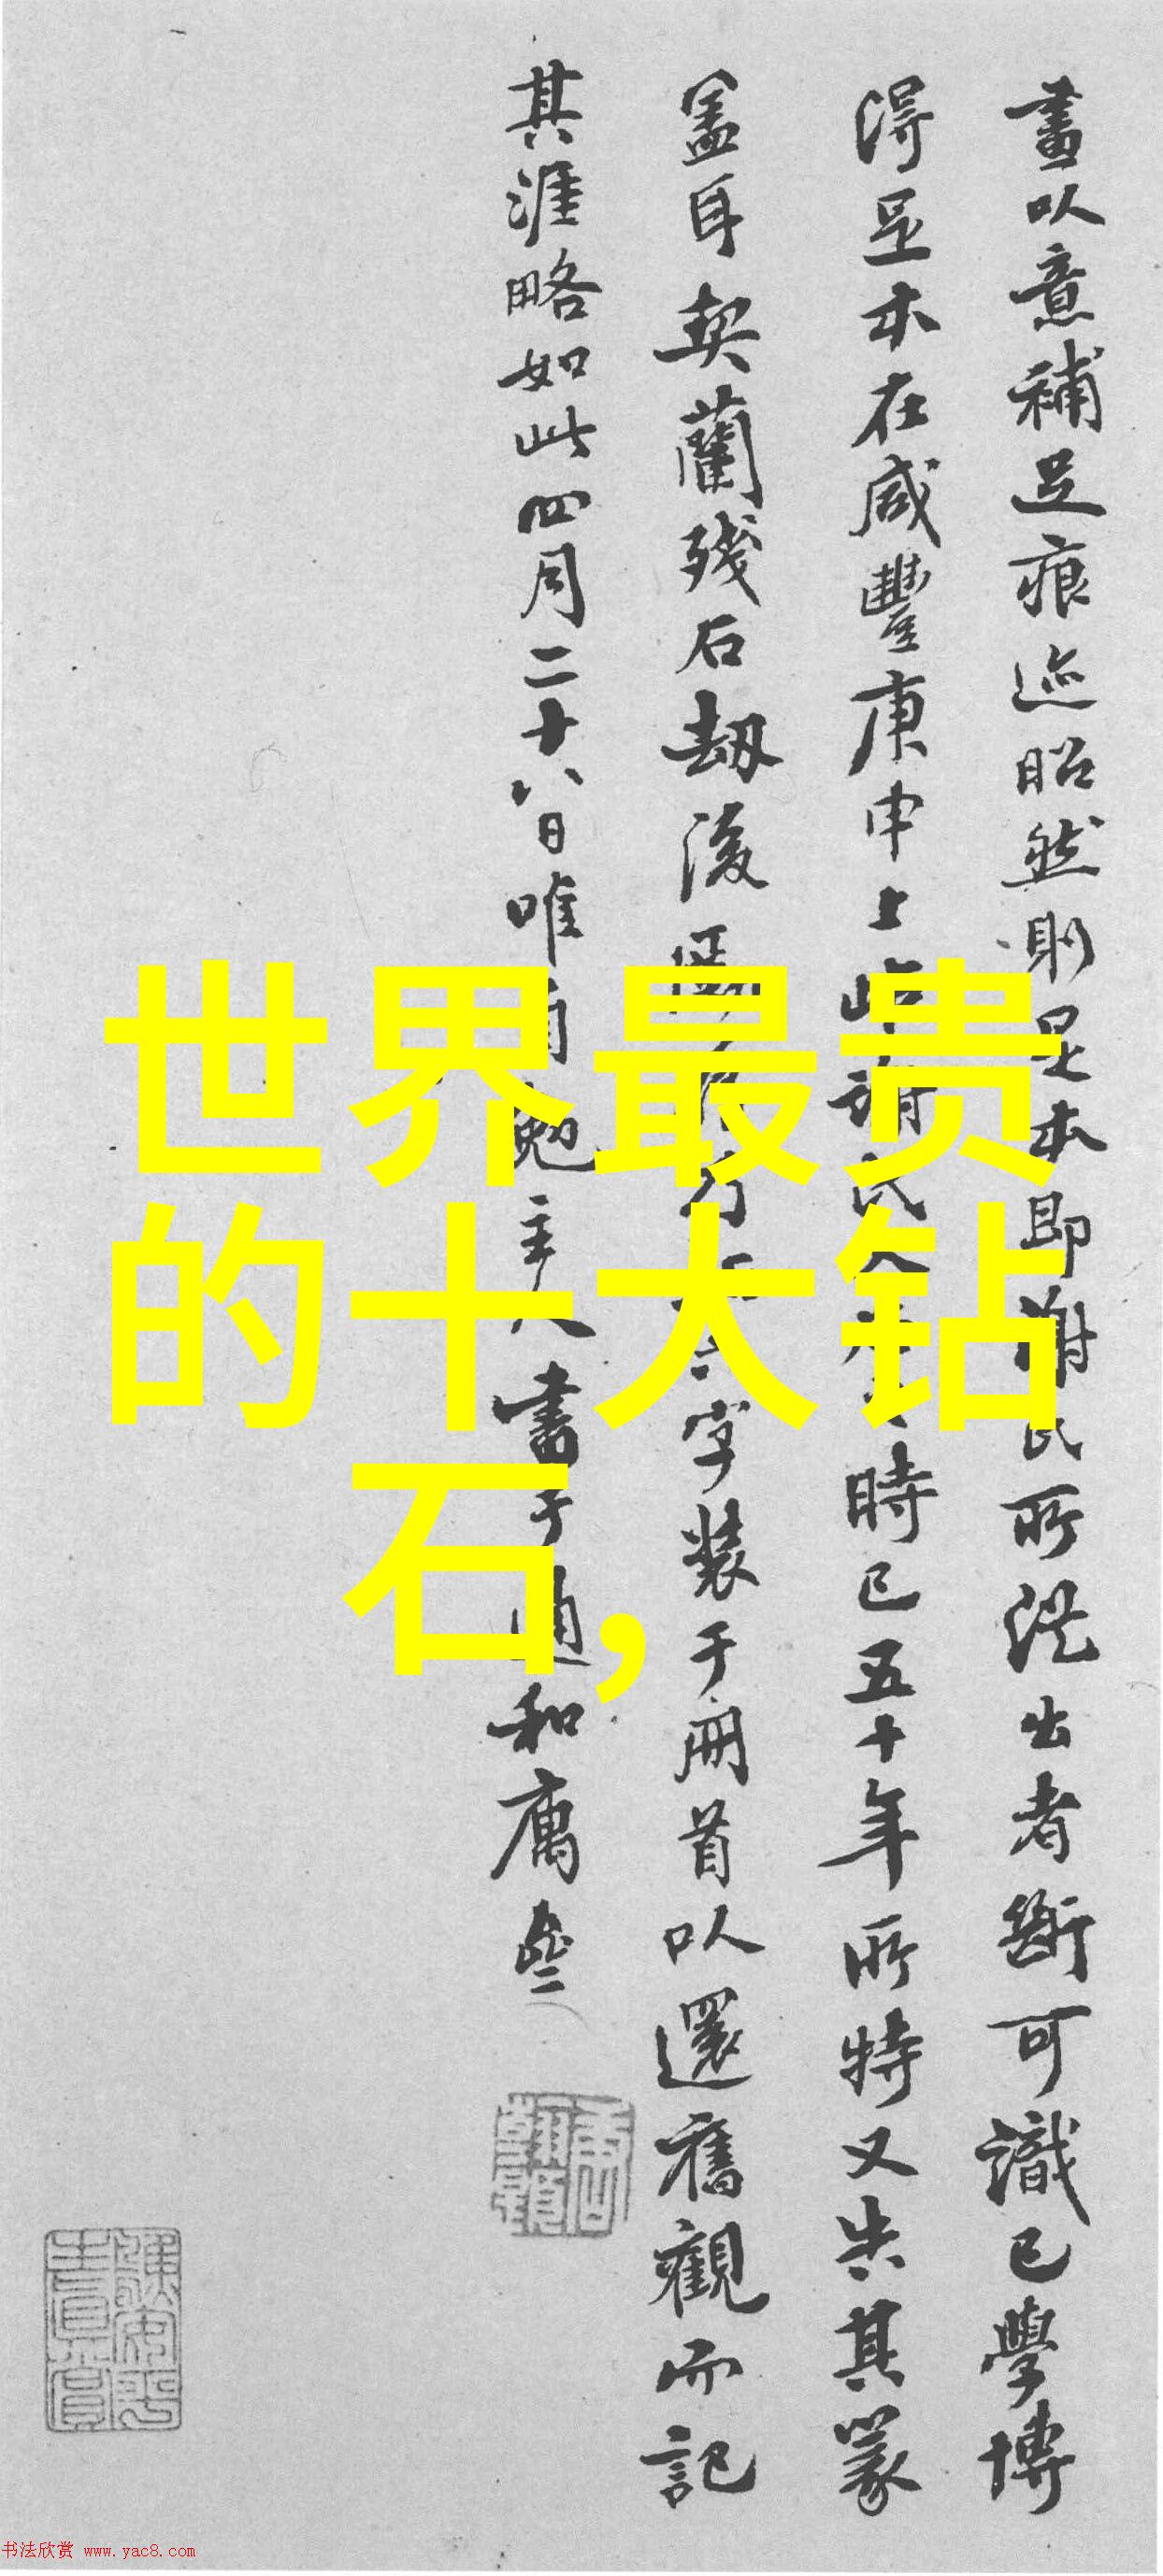 畫以意補足痕迹昭然則是本即謝氏所洗出者斷可識已學博
得足本在咸豐庚申上時已五十年所特又失其篆
蓋耳契蘭殘石劫後字装于冊首以還舊觀而記
其涯略如此四月二十八日唯自勉主人書于通和廎
世界最贵
的十大钻
石,
书法欣赏 www.yac8.com